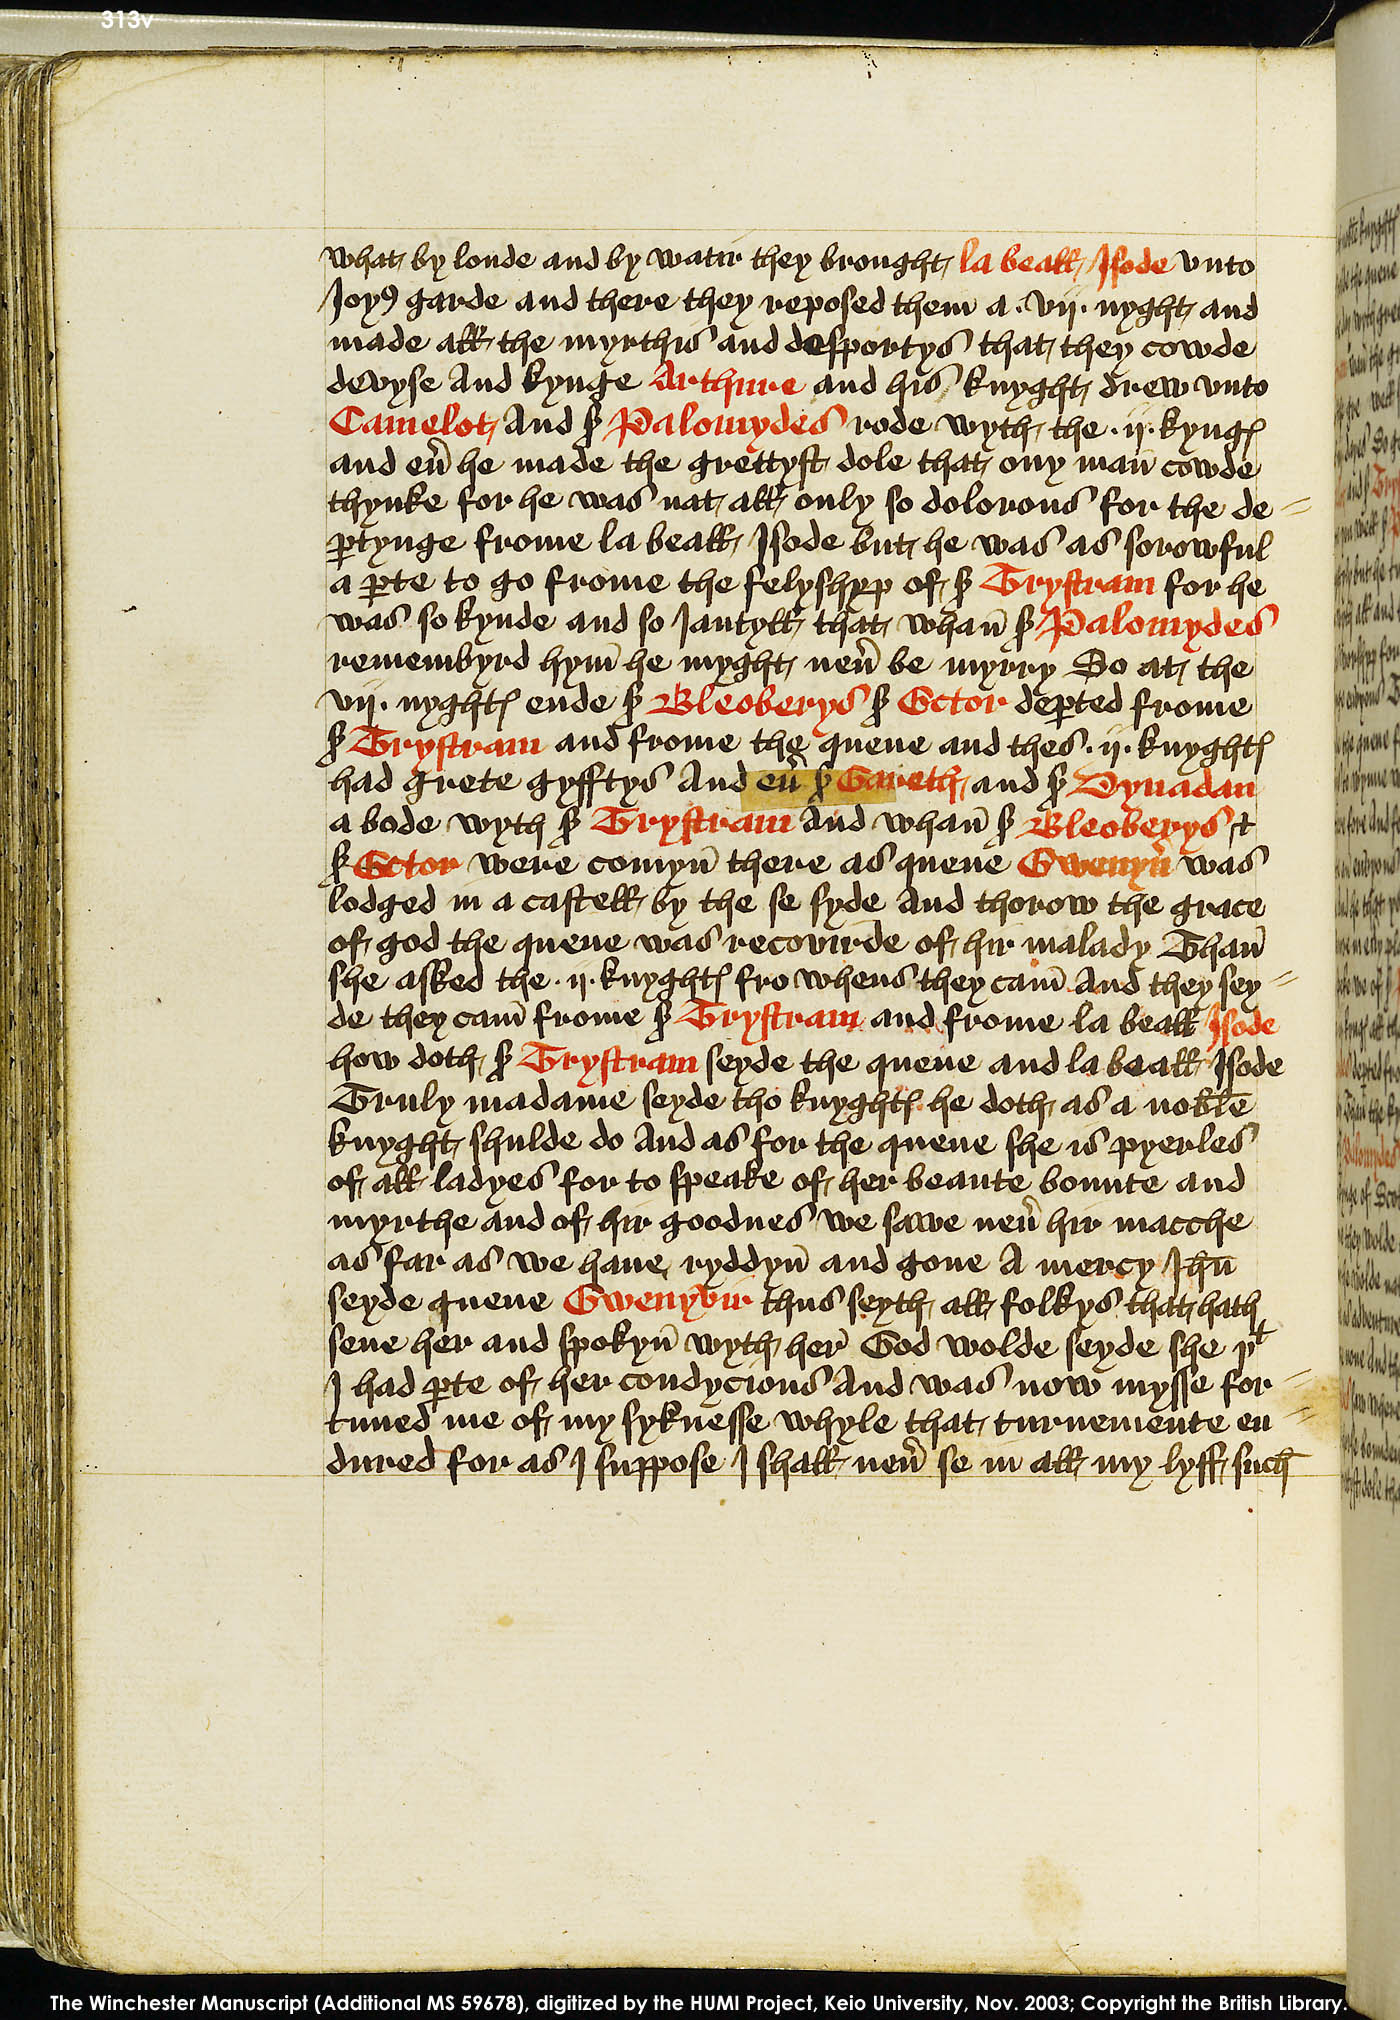 313v
what by londe and by watir they brought la beall Isode vnto
Joyꝯ garde and there they reposed them a .vij. nyght and
made all the myrthis and desportys that they cowde
devyse And kynge Arthure and his knyght drew vnto
Camelot And ẜ Palomydes rode wyth the .ij. kyngꝭ
and eũ he made the grettyst dole that ony mañ cowde
thynke for he was nat all only so dolorous for the de⸗
ꝑtynge frome la beall Isode but he was as sorowful
a ꝑte to go frome the felyshyp of ẜ Trystram for he
was so kynde and so Jantyll that whañ ẜ Palomydes
remembyrd hym̃ he myght neũ be myrry So at the
vij. nyghtꝭ ende ẜ Bleoberys ẜ Ector deꝑted frome
ẜ Trystram and frome the quene and thes .ij. knyghtꝭ
had grete gyfftys And eũ ẜ Gareth and ẜ Dynadan
a bode wyth ẜ Trystram And whañ ẜ Bleoberys ⁊
ẜ Ector were comyñ there as quene Gwenyũ was
lodged in a castell by the se syde And thorow the grace
of god the quene was recovirde of hir malady Thañ
she asked the .ij. knyghtꝭ fro whens they cam̃ And they sey⸗
de they cam̃ frome ẜ Trystram and frome la beall Isode
how doth ẜ Trystram seyde the quene and la beall Isode
Truly madame seyde tho knyghtꝭ he doth as a noble
knyght shulde do And as for the quene she is pyerles
of all ladyes for to speake of her beaute bounte and
myrthe and of hir goodnes we sawe neũ hir macche
as far as we haue ryddyñ and gone A mercy Ihũ
seyde quene Gwenyvir thus seyth all folkys that hath
sene her and spokyñ wyth her God wolde seyde she yᵗ
I had ꝑte of her condycions And was now mysse for⸗
tuned me of my syknesse whyle that turnemente en⸗
dured for as I suppose I shall neũ se in all my lyff such
The Winchester Manuscript (Additional MS 59678), digitized by the HUMI Project, Keio University, Nov. 2003; Copyright the British Library.